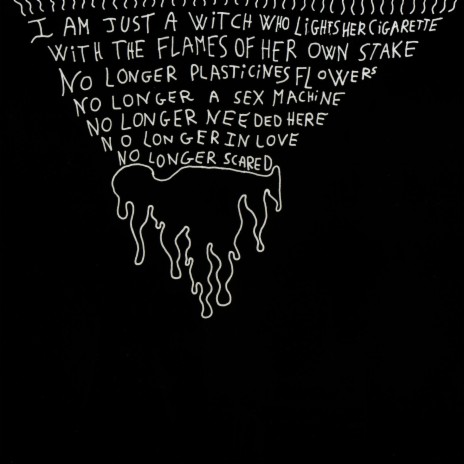 I AM JUST A WITCH WHO LIGHTS HER CIGARETTE
WITH THE FLAMES OF HER OWN STAKE
NO LONGER PLASTICINES FLOWERS
NO LONGER A SEX MACHINE
NO LONGER NEEDED HERE
NO LONGER IN LOVE
NO LONGER SCARED